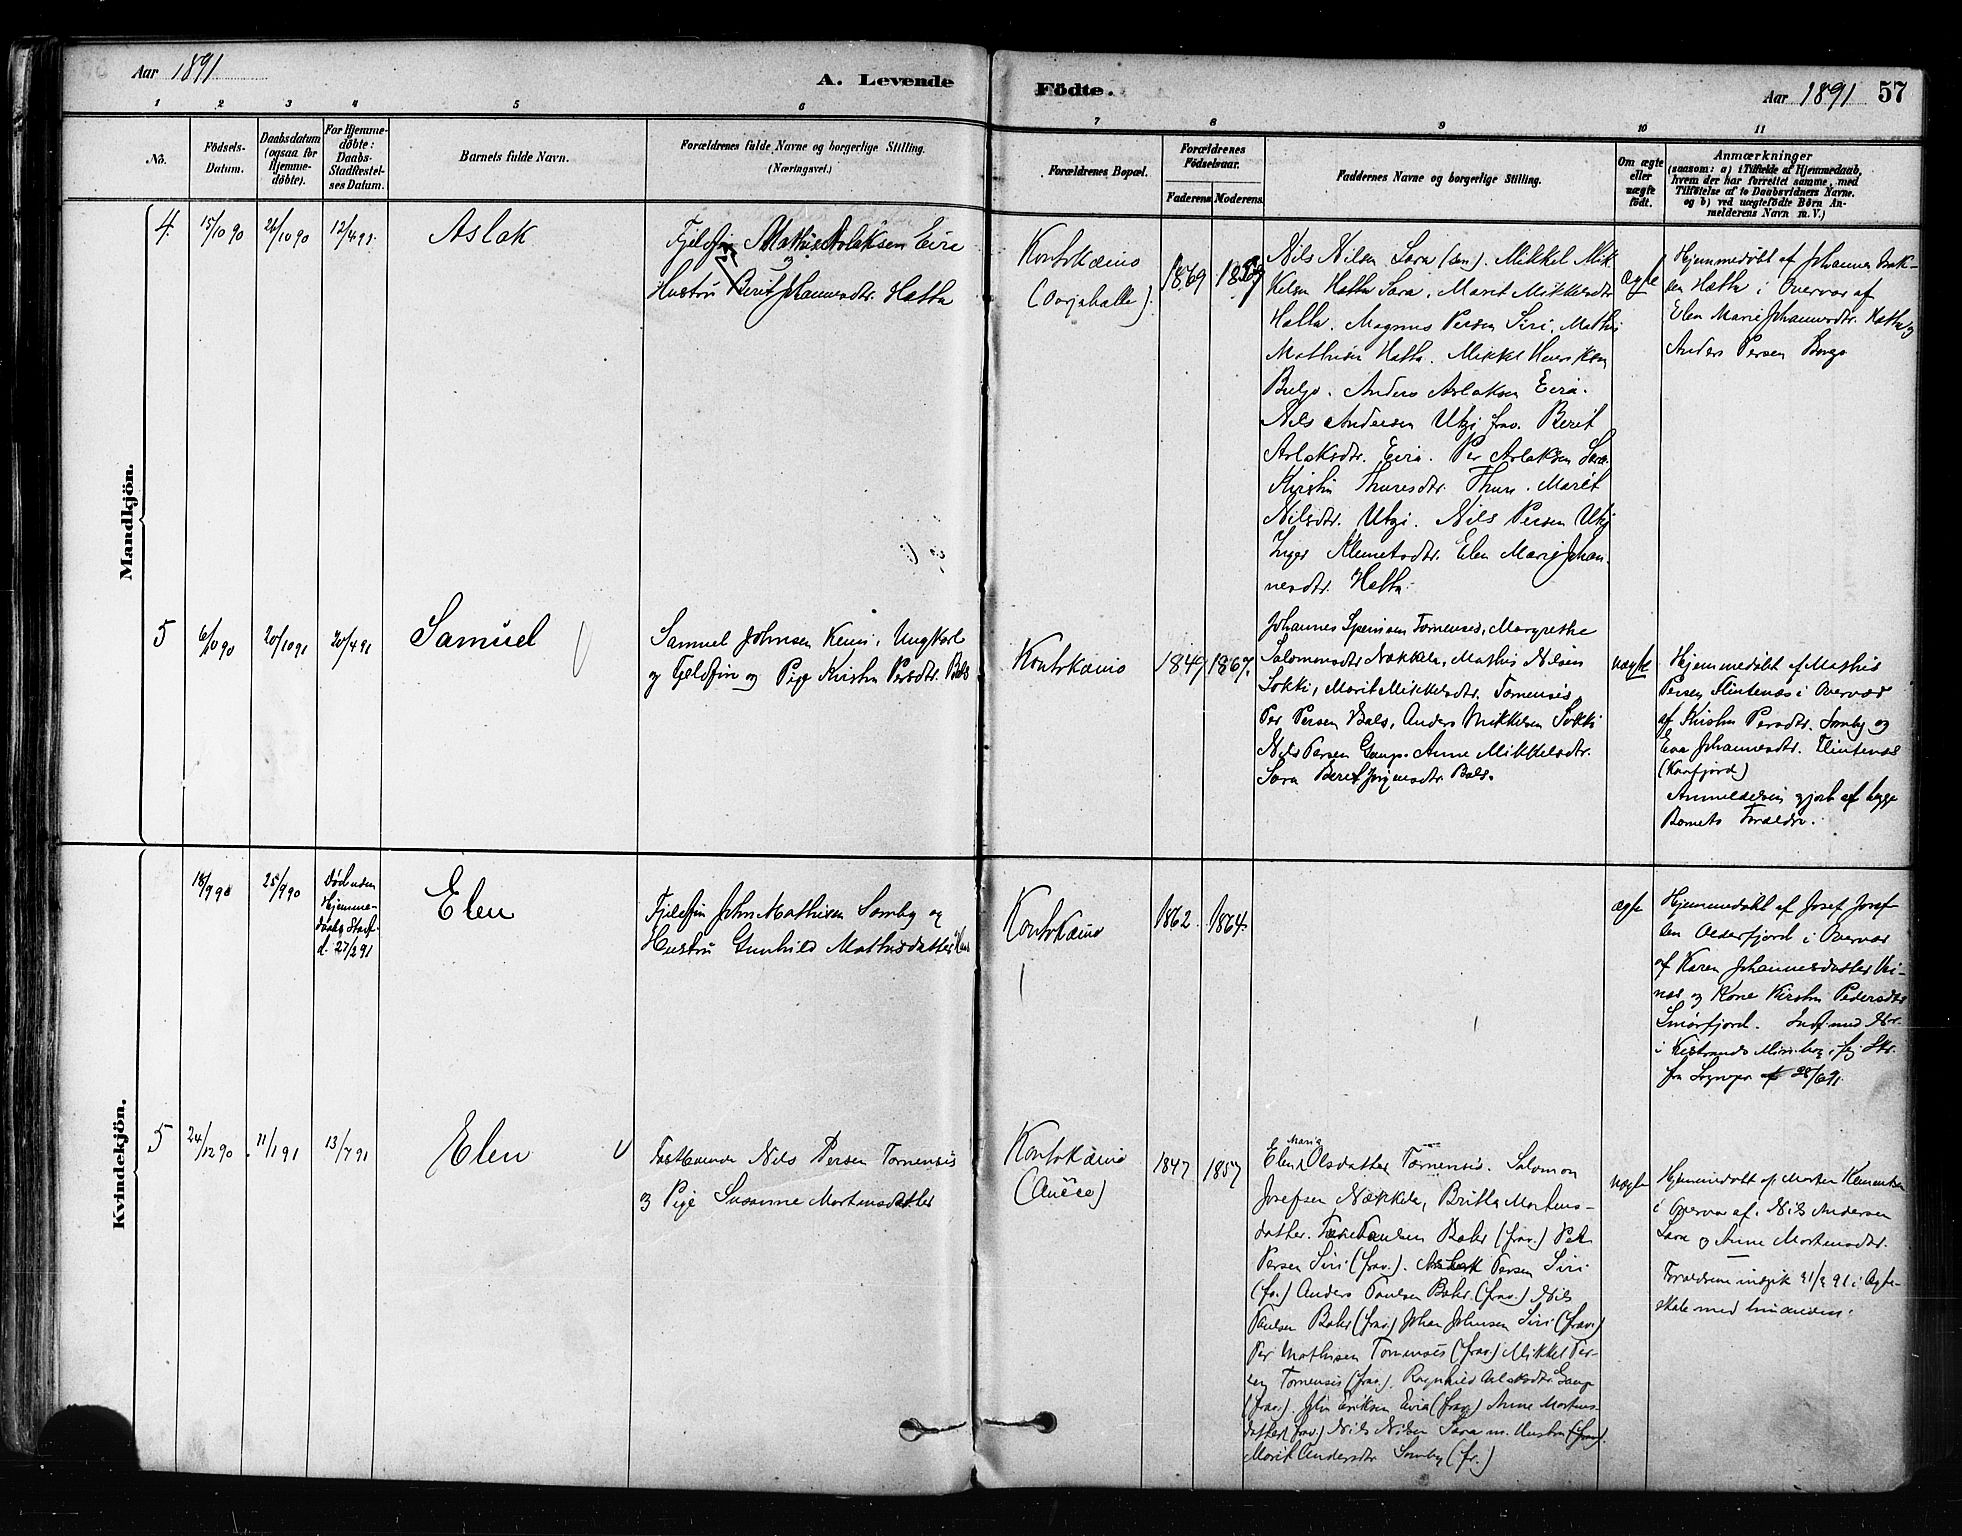 Aar 1891
A. Levende
Födte.
Aar 1891
57
1 2 3 4 5 6 7 8 9 10 11
No.
Födsels-
Datum.
Daabsdatum
(ogsaa for
Hjemme-
døbte).
For Hjemme-
døbte:
Daabs-
Stadfæstel-
ses Datum.
Barnets fulde Navn.
Forældrenes fulde Navne og borgerlige Stilling.
(Næringsvei.)
Forældrenes Bopæl.
Forældrenes
Födselsaar.
Faderens. Moderens.
Faddernes Navne og borgerlige Stilling.
Om ægte
eller
uægte
födt.
Anmærkninger
(saasom: a) i Tilfælde af Hjemmedaab,
hvem der har forrettet samme, med
Tilföielse af to Daabsvidners Navne.
og b) ved uægtefödte Börn An-
melderens Navn m. V.)
Mandkjön.
4.
15/10 90
26/10 90
12/4 91.
Aslak
Fjeldfin Mathis Aslaksen Eira
og
Hustru Berit Johannesdtr. Hætta
Kontokæino
1869
ægte
Nils Nilsen Sara (sen). Mikkel Mik
kelsen Hætta Sara, Marit Mikkelsdtr
Hætta. Magnus Persen Siri, Mathis
Mathisen Hætta. Mikkel Henriksen
Buljo. Anders Aslaksen Eira.
Nils Andersen Utzi frav. Berit
Aslaksdtr. Eira. Per Aslaksen Sara.
Kirstin Thuresdtr. Thuri. Marit
Nilsdtr. Utzi. Nils Persen Utzi
Inger Klemetsdtr. Elen Marie Johan-
nesdtr. Hætta.
Hjemmedøbt af Johannes Isak-
sen Hætta i Overvær af
Elen Marie Johannesdtr. Hætta og
Anders Persen
5
6/10 90
20/10 91
20/4 91
Samuel
Samuel Johnsen Kemi, Ungkarl
og Fjeldfin og Pige Kirstin Persdtr. Bals
Kontokæino
1849
1867.
uægte
Johannes Tornensis, Margrethe
Salomonsdtr Nækkela, Mathis Nilsen
Sokki, Marit Mikkelsdtr. Tornensis
Per Persen Bals, Anders Mikkelsen Sokki
Nils Persen Gaup. Anne Mikkelsdtr.
Sara Berit Jørgensdtr. Bals.
Hjemmedøbt af Mathis
Persen Flintenæs i Overvær
af Kirstin Persdtr. Somby og
Eva Johannesdtr. Flintenæs
(Kaafjord)
Anmeldelsen gjort af begge
Barnets Forældre.
Kvindekjön.
18/9 90
25/9 90
Død uden
Hjemme-
daabs Stadf.
d. 27/2 91
Elen
Fjeldfin John Mathisen Somby og
Hustru Gunhild Mathisdatter
Kontokæino
1862
1864.
ægte
Hjemmedøbt af Josef Josef-
sen Olderfjord i Overvær
af Karen Johannesdatter
og Kone Kirsten Pedersdtr
Smørfjord. Indf. med Nr.
i Kistrands Min.bog,
fra Sognepr. 28/6 91.
5
24/12 90
11/1 91
13/4 91
Elen
Fastboende Nils Persen Tornensis
og Pige Susanne Mortensdatter
Kontokæino
1847
1857
uægte
Maria
Elen Olsdatter Tornensis. Salomon
Josefsen Nækkela, Britta Mortens-
datter. Paulsen Bahr (frav.) Per
Persen Siri (frav.). Aslak Persen Siri
(fr.) Anders Paulsen Bahr (frav.) Nils
Paulsen Bahr (frav.) Johan Johnsen Siri (frav.)
Per Mathisen Tornensis (frav.) Mikkel Per-
sen Tornensis (frav.). Ragnhild Aslaksdtr. Gaup
(frav.). John Eriksen Eira (frav.) Anne Mortens-
datter (frav.) Nils Nilsen Sara m. Hustru (frav.)
Marit Andersdtr Somby (fr.)
Hjemmedøbt af Morten Klemetsen
i Overvær af. Nils Andersen
Sara og Anne Mortensdtr.
Forældrene indgik i Ægte-
skab med hinanden.